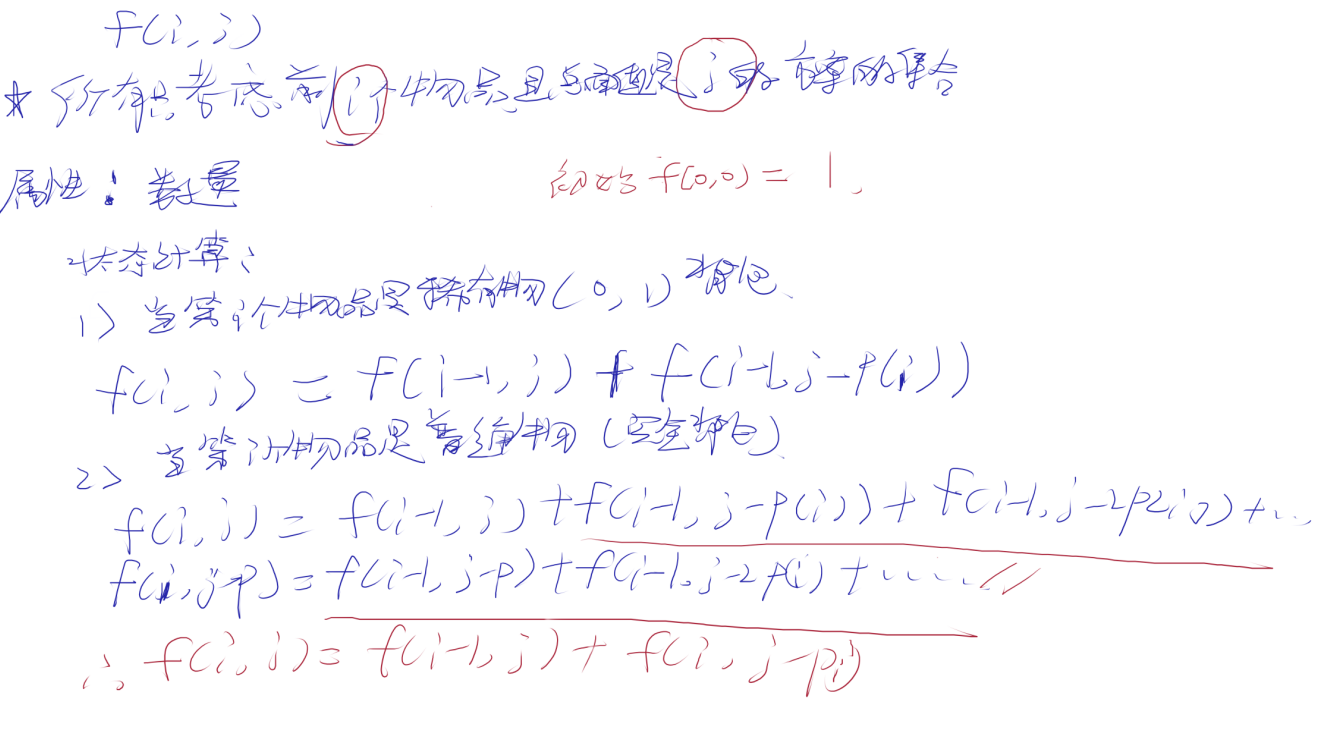 f(i,j)
* 所有只考虑前i个物品,且总価值是j的方案的集合
属性:数量
初始 f(0,0) = 1.
状态计算:
1> 当第i个物品是稀有物(0,1)背包.
f(i,j) = f(i-1,j) + f(i-1,j-p(i))
2> 当第i个物品是普通物(完全背包).
f(i,j) = f(i-1,j) + f(i-1,j-p(i)) + f(i-1,j-2p(i)) + ...
f(i,j-p) = f(i-1,j-p) + f(i-1,j-2p(i) + ......
∴ f(i,j) = f(i-1,j) + f(i,j-pi)